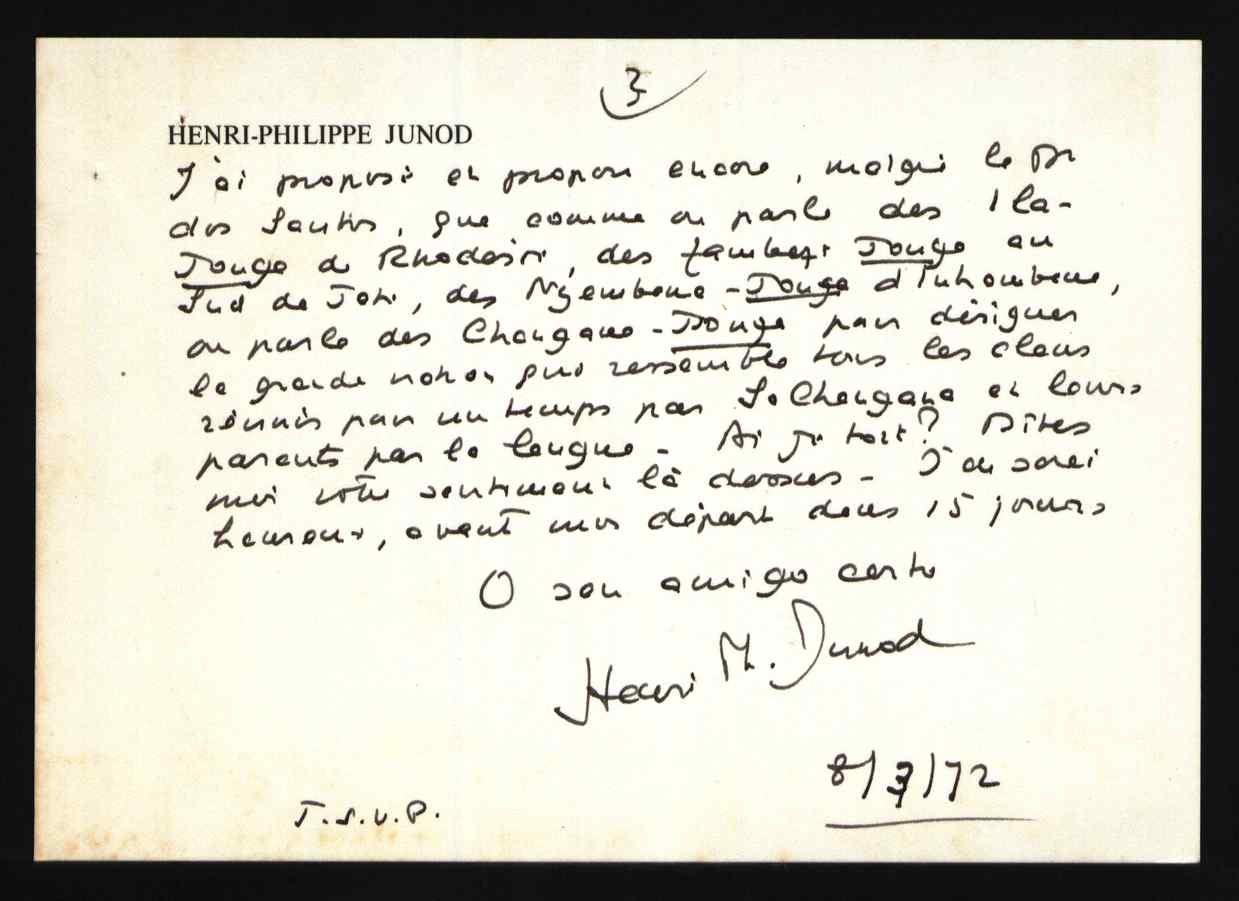 3
HENRI-PHILIPPE JUNOD
J'ai proposé et propose encore, malgré le Dr
dos Santos, que comme on parle des Ila-
Tonga de Rhodésie, des Zambezi Tonga au
Sud de, des Nyembane-Tonga d'Inhambane,
on parle des Changane-Tonga pour désigner
la grande nation qui rassemble tous les clans
réunis pour un temps par So Changana et leurs
parents par la langue - Ai je tort? Dîtes
moi votre sentiment là dessus - J'en serai
heureux, avant mon départ dans 15 jours
O seu amigo certo
Henri Ph. Junod
8/3/72
T.S.V.P.